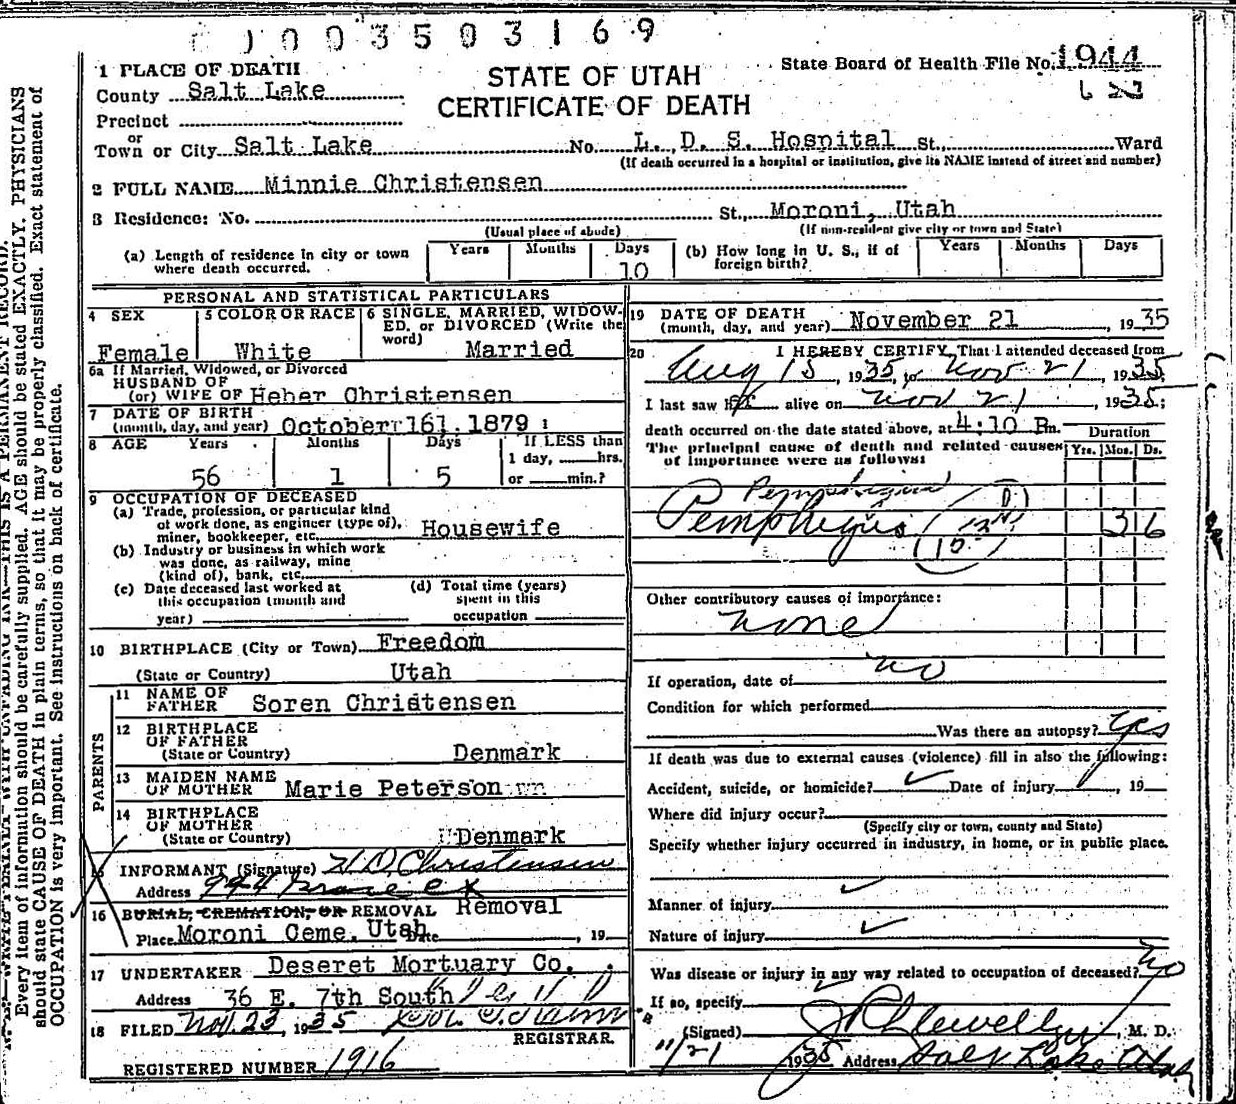 0 0 3 5 0 3 1 6 9
STATE OF UTAH
CERTIFICATE OF DEATH
State Board of Health File No. 1944
1 PLACE OF DEATH
County Salt Lake
Precinct
or
Town or City Salt Lake No. L. D. S. Hospital St., Ward
(If death occurred in a hospital or institution, give its NAME instead of street and number)
2 FULL NAME Minnie Christensen
3 Residence: No. St., Moroni, Utah
(Usual place of abode) (If non-resident give city or town and State)
(a) Length of residence in city or town where death occurred. Years Months Days 10
(b) How long in U. S., if of foreign birth? Years Months Days
PERSONAL AND STATISTICAL PARTICULARS
4 SEX Female
5 COLOR OR RACE White
6 SINGLE, MARRIED, WIDOWED, or DIVORCED (Write the word) Married
6a If Married, Widowed, or Divorced
HUSBAND OF
(or) WIFE OF Heber Christensen
7 DATE OF BIRTH
(month, day, and year) October 16 1879
8 AGE Years 56 Months 1 Days 5 If LESS than 1 day, hrs. or min.?
9 OCCUPATION OF DECEASED
(a) Trade, profession, or particular kind
of work done, as engineer (type of),
miner, bookkeeper, etc. Housewife
(b) Industry or business in which work
was done, as railway, mine
(kind of), bank, etc.
(c) Date deceased last worked at
this occupation (month and
year)
(d) Total time (years)
spent in this
occupation
10 BIRTHPLACE (City or Town) Freedom
(State or Country) Utah
PARENTS
11 NAME OF
FATHER Soren Christensen
12 BIRTHPLACE
OF FATHER
(State or Country) Denmark
13 MAIDEN NAME
OF MOTHER Marie Peterson
14 BIRTHPLACE
OF MOTHER
(State or Country) Denmark
15 INFORMANT (Signature) H D Christensen
Address 944
16 BURIAL, CREMATION, OR REMOVAL Removal
Place Moroni Ceme. Utah Date , 19
17 UNDERTAKER Deseret Mortuary Co.
Address 36 E. 7th South
18 FILED Nov. 23, 1935
REGISTRAR.
REGISTERED NUMBER 1916
19 DATE OF DEATH
(month, day, and year) November 21, 1935
20 I HEREBY CERTIFY, That I attended deceased from
Aug 15, 1935, to Nov 21, 1935;
I last saw alive on Nov 21, 1935;
death occurred on the date stated above, at 4:10 Pm.
The principal cause of death and related causes
of importance were as follows:
Duration
Yrs. Mos. Ds.
Pemphigus
3 6
Other contributory causes of importance:
none
If operation, date of no
Condition for which performed
Was there an autopsy? Yes
If death was due to external causes (violence) fill in also the following:
Accident, suicide, or homicide? Date of injury , 19
Where did injury occur?
(Specify city or town, county and State)
Specify whether injury occurred in industry, in home, or in public place.
Manner of injury
Nature of injury
Was disease or injury in any way related to occupation of deceased? No
If so, specify
(Signed) J P Llewellyn, M. D.
11/21 1935 Address Salt Lake Utah
Every item of information should be carefully supplied. AGE should be stated EXACTLY. PHYSICIANS
should state CAUSE OF DEATH in plain terms, so that it may be properly classified. Exact statement of
OCCUPATION is very important. See instructions on back of certificate.